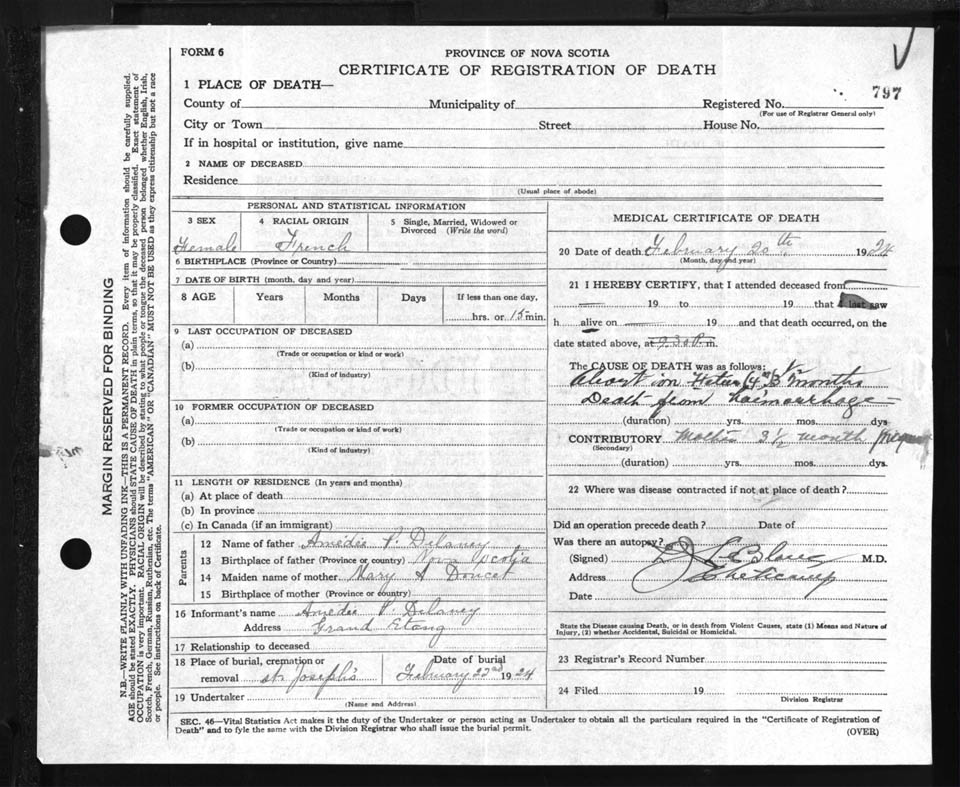 FORM 6
PROVINCE OF NOVA SCOTIA
CERTIFICATE OF REGISTRATION OF DEATH
1 PLACE OF DEATH—
797
County of Municipality of Registered No.
(For use of Registrar General only)
City or Town Street House No.
If in hospital or institution, give name
2 NAME OF DECEASED
Residence
(Usual place of abode)
PERSONAL AND STATISTICAL INFORMATION
3 SEX 4 RACIAL ORIGIN 5 Single, Married, Widowed or
Divorced (Write the word)
Female French
6 BIRTHPLACE (Province or Country)
7 DATE OF BIRTH (month, day and year)
8 AGE Years Months Days If less than one day,
hrs. or 15 min.
9 LAST OCCUPATION OF DECEASED
(a)
(Trade or occupation or kind or work)
(b)
(Kind of industry)
10 FORMER OCCUPATION OF DECEASED
(a)
(Trade or occupation or kind of work)
(b)
(Kind of industry)
11 LENGTH OF RESIDENCE (In years and months)
(a) At place of death
(b) In province
(c) In Canada (if an immigrant)
Parents
12 Name of father Amedée P. Delaney
13 Birthplace of father (Province or country) Nova Scotia
14 Maiden name of mother Mary A Doucet
15 Birthplace of mother (Province or country)
16 Informant's name Amedée P. Delaney
Address Grand Etang
17 Relationship to deceased
18 Place of burial, cremation or Date of burial
removal St. Joseph's February 22nd 1924
19 Undertaker
(Name and Address)
MEDICAL CERTIFICATE OF DEATH
20 Date of death February 20th, 1924
(Month, day and year)
21 I HEREBY CERTIFY, that I attended deceased from
19 to 19 that I last saw
h alive on 19 and that death occurred, on the
date stated above, at 9.30 P. m.
The CAUSE OF DEATH was as follows:
months
Death from haemorrhage
(duration) yrs. mos. dys
CONTRIBUTORY 3 1/2 month
(Secondary)
(duration) yrs. mos. dys.
22 Where was disease contracted if not at place of death?
Did an operation precede death? Date of
Was there an autopsy?
(Signed) M.D.
Address Cheticamp
Date
State the Disease causing Death, or in death from Violent Causes, state (1) Means and Nature of
Injury, (2) whether Accidental, Suicidal or Homicidal.
23 Registrar's Record Number
24 Filed 19
Division Registrar
SEC. 46—Vital Statistics Act makes it the duty of the Undertaker or person acting as Undertaker to obtain all the particulars required in the "Certificate of Registration of
Death" and to fyle the same with the Division Registrar who shall issue the burial permit.
(OVER)
MARGIN RESERVED FOR BINDING
N.B.—WRITE PLAINLY WITH UNFADING INK—THIS IS A PERMANENT RECORD. Every item of information should be carefully supplied.
AGE should be stated EXACTLY. PHYSICIANS should STATE CAUSE OF DEATH in plain terms, so that it may be properly classified. Exact statement of
OCCUPATION is very important. RACIAL ORIGIN will be described by stating to what people or tongue the deceased person belonged whether English, Irish,
Scotch, French, German, Russian, Ruthenian, etc. The terms "AMERICAN" or "CANADIAN" MUST NOT BE USED as they express citizenship but not a race
or people. See instructions on back of Certificate.